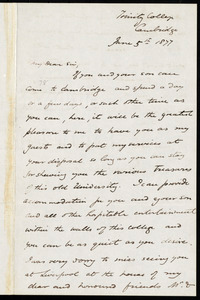 Trinity College
Cambridge
June 5th 1877
My Dear Sir,
If you and your son can
come to Cambridge and spend a day
or a few days, or such other time as
you can, here, it will be the greatest
pleasure to me to have you as my
guests and to put my services at
your disposal so long as you can stay
for shewing you the various treasures
of this old University. I can provide
accommodation for you and your son
and all other hospitable entertainment
within the walls of this college and
you can be as quiet as you desire.
I was very sorry to miss seeing you
at Liverpool at the house of my
dear and honoured friends Mr &